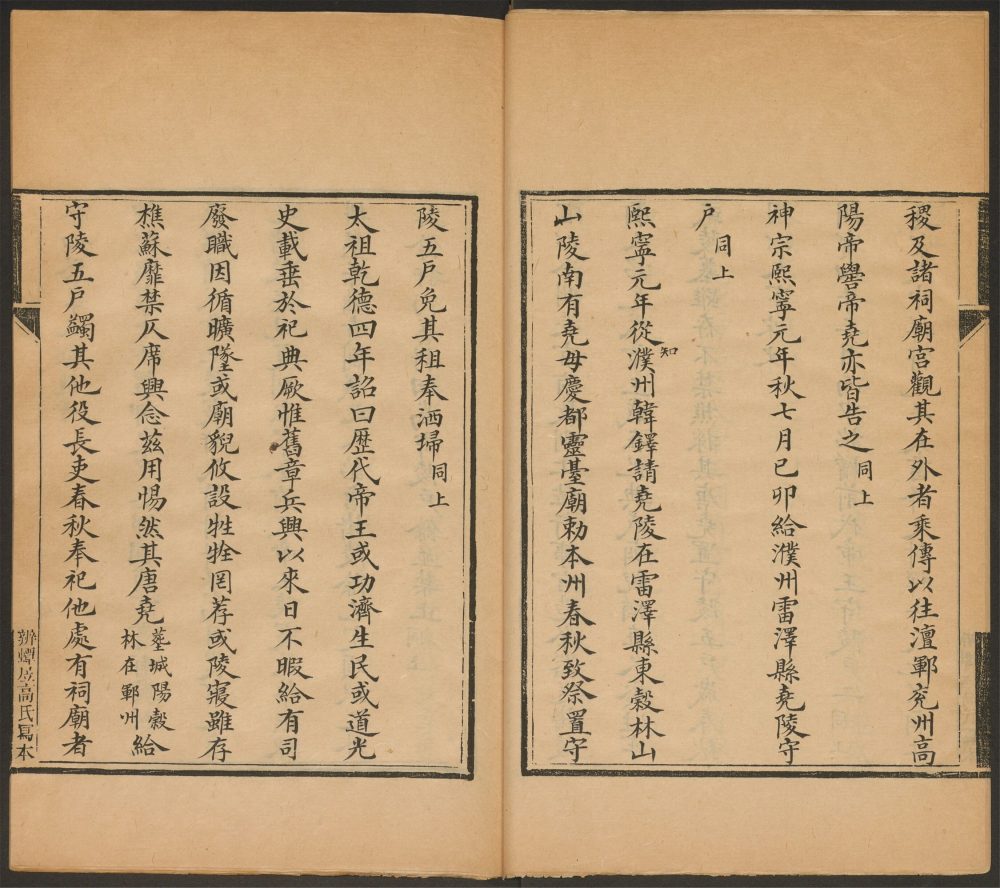 稷及諸祠廟宮觀其在外者乘傳以往澶鄆兖州高
陽帝嚳帝堯亦皆告之同上
神宗熙寧元年秋七月已卯給濮州雷澤縣堯陵守
户同上
熙寧元年從知濮州韓鐸請堯陵在雷澤縣東穀林山
山陵南有堯母慶都靈臺廟勅本州春秋致祭置守
陵五户免其租奉洒埽同上
太祖乾德四年詔曰歷代帝王或功濟生民或道光
史載垂於祀典厥惟舊章兵興以來日不暇給有司
廢職因循曠墜或廟貎攸設牲牷罔荐或陵寢雖存
樵蘇靡禁仄席興念兹用惕然其唐堯墓城陽穀林在鄆州給
守陵五户蠲其他役長吏春秋奉祀他處有祠廟者
辨蟫居高氏寫本